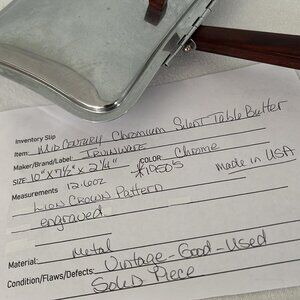 Inventory Slip
Item: Mid Century Chromium Silent Table Butler
Maker/Brand/Label: Irvinware
SIZE 10" x 7½" x 2¼" COLOR: Chrome
Measurements 12.6oz *1950's made in USA
Lion Crown Pattern
engraved
Material: metal
Condition/Flaws/Defects: Vintage-Good-Used
Solid Piece